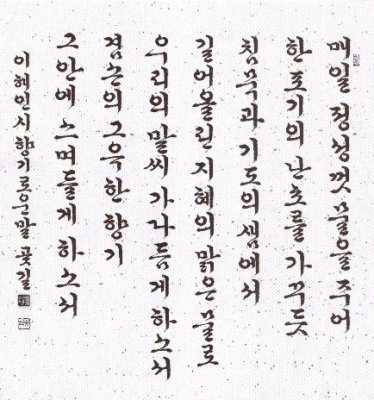 매일 정성껏 물을 주어
한 포기의 난초를 가꾸듯
침묵과 기도의 샘에서
길어올린 지혜의 맑은 물로
우리의 말씨 가다듬게 하소서
겸손의 그윽한 향기
그 안에 스며들게 하소서
이해인 시 향기로운 말 꽃길